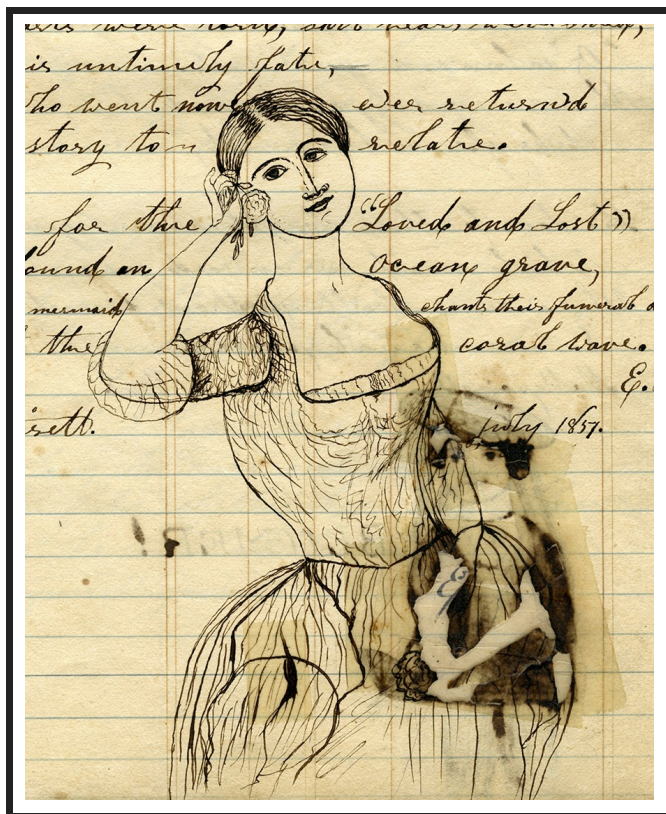 is untimely fate,
who went now ever return'd
story to relate.
for the "Loved and Lost"
ound an ocean grave,
mermaid chants their funeral
the coral wave.
E.
sett.
july 1857.